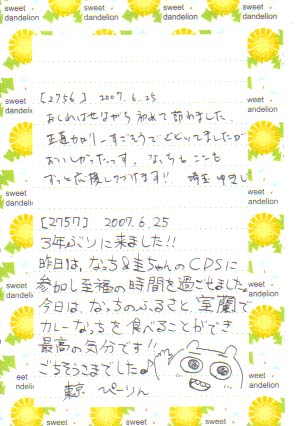 sweet dandelion sweet dandelion sweet dandelion
[2756] 2007.6.25
おしればせながら 初めて 訪れました。
正直カロリーすごそうで どどってましたが
おいしかったっす。 なっちも ここも
ずっと応援しつづけます!! 埼玉
[2757] 2007.6.25
3年ぶりに来ました!!
昨日は、なっち&圭ちゃんのCDSに
参加し至福の時間を過ごせました。
今日は、なっちのふるさと、室蘭で
カレーなっちを食べることができ
最高の気分です!!
ごちそうさまでした♪
東京 ぴーりん
sweet dandelion sweet dandelion sweet dandelion